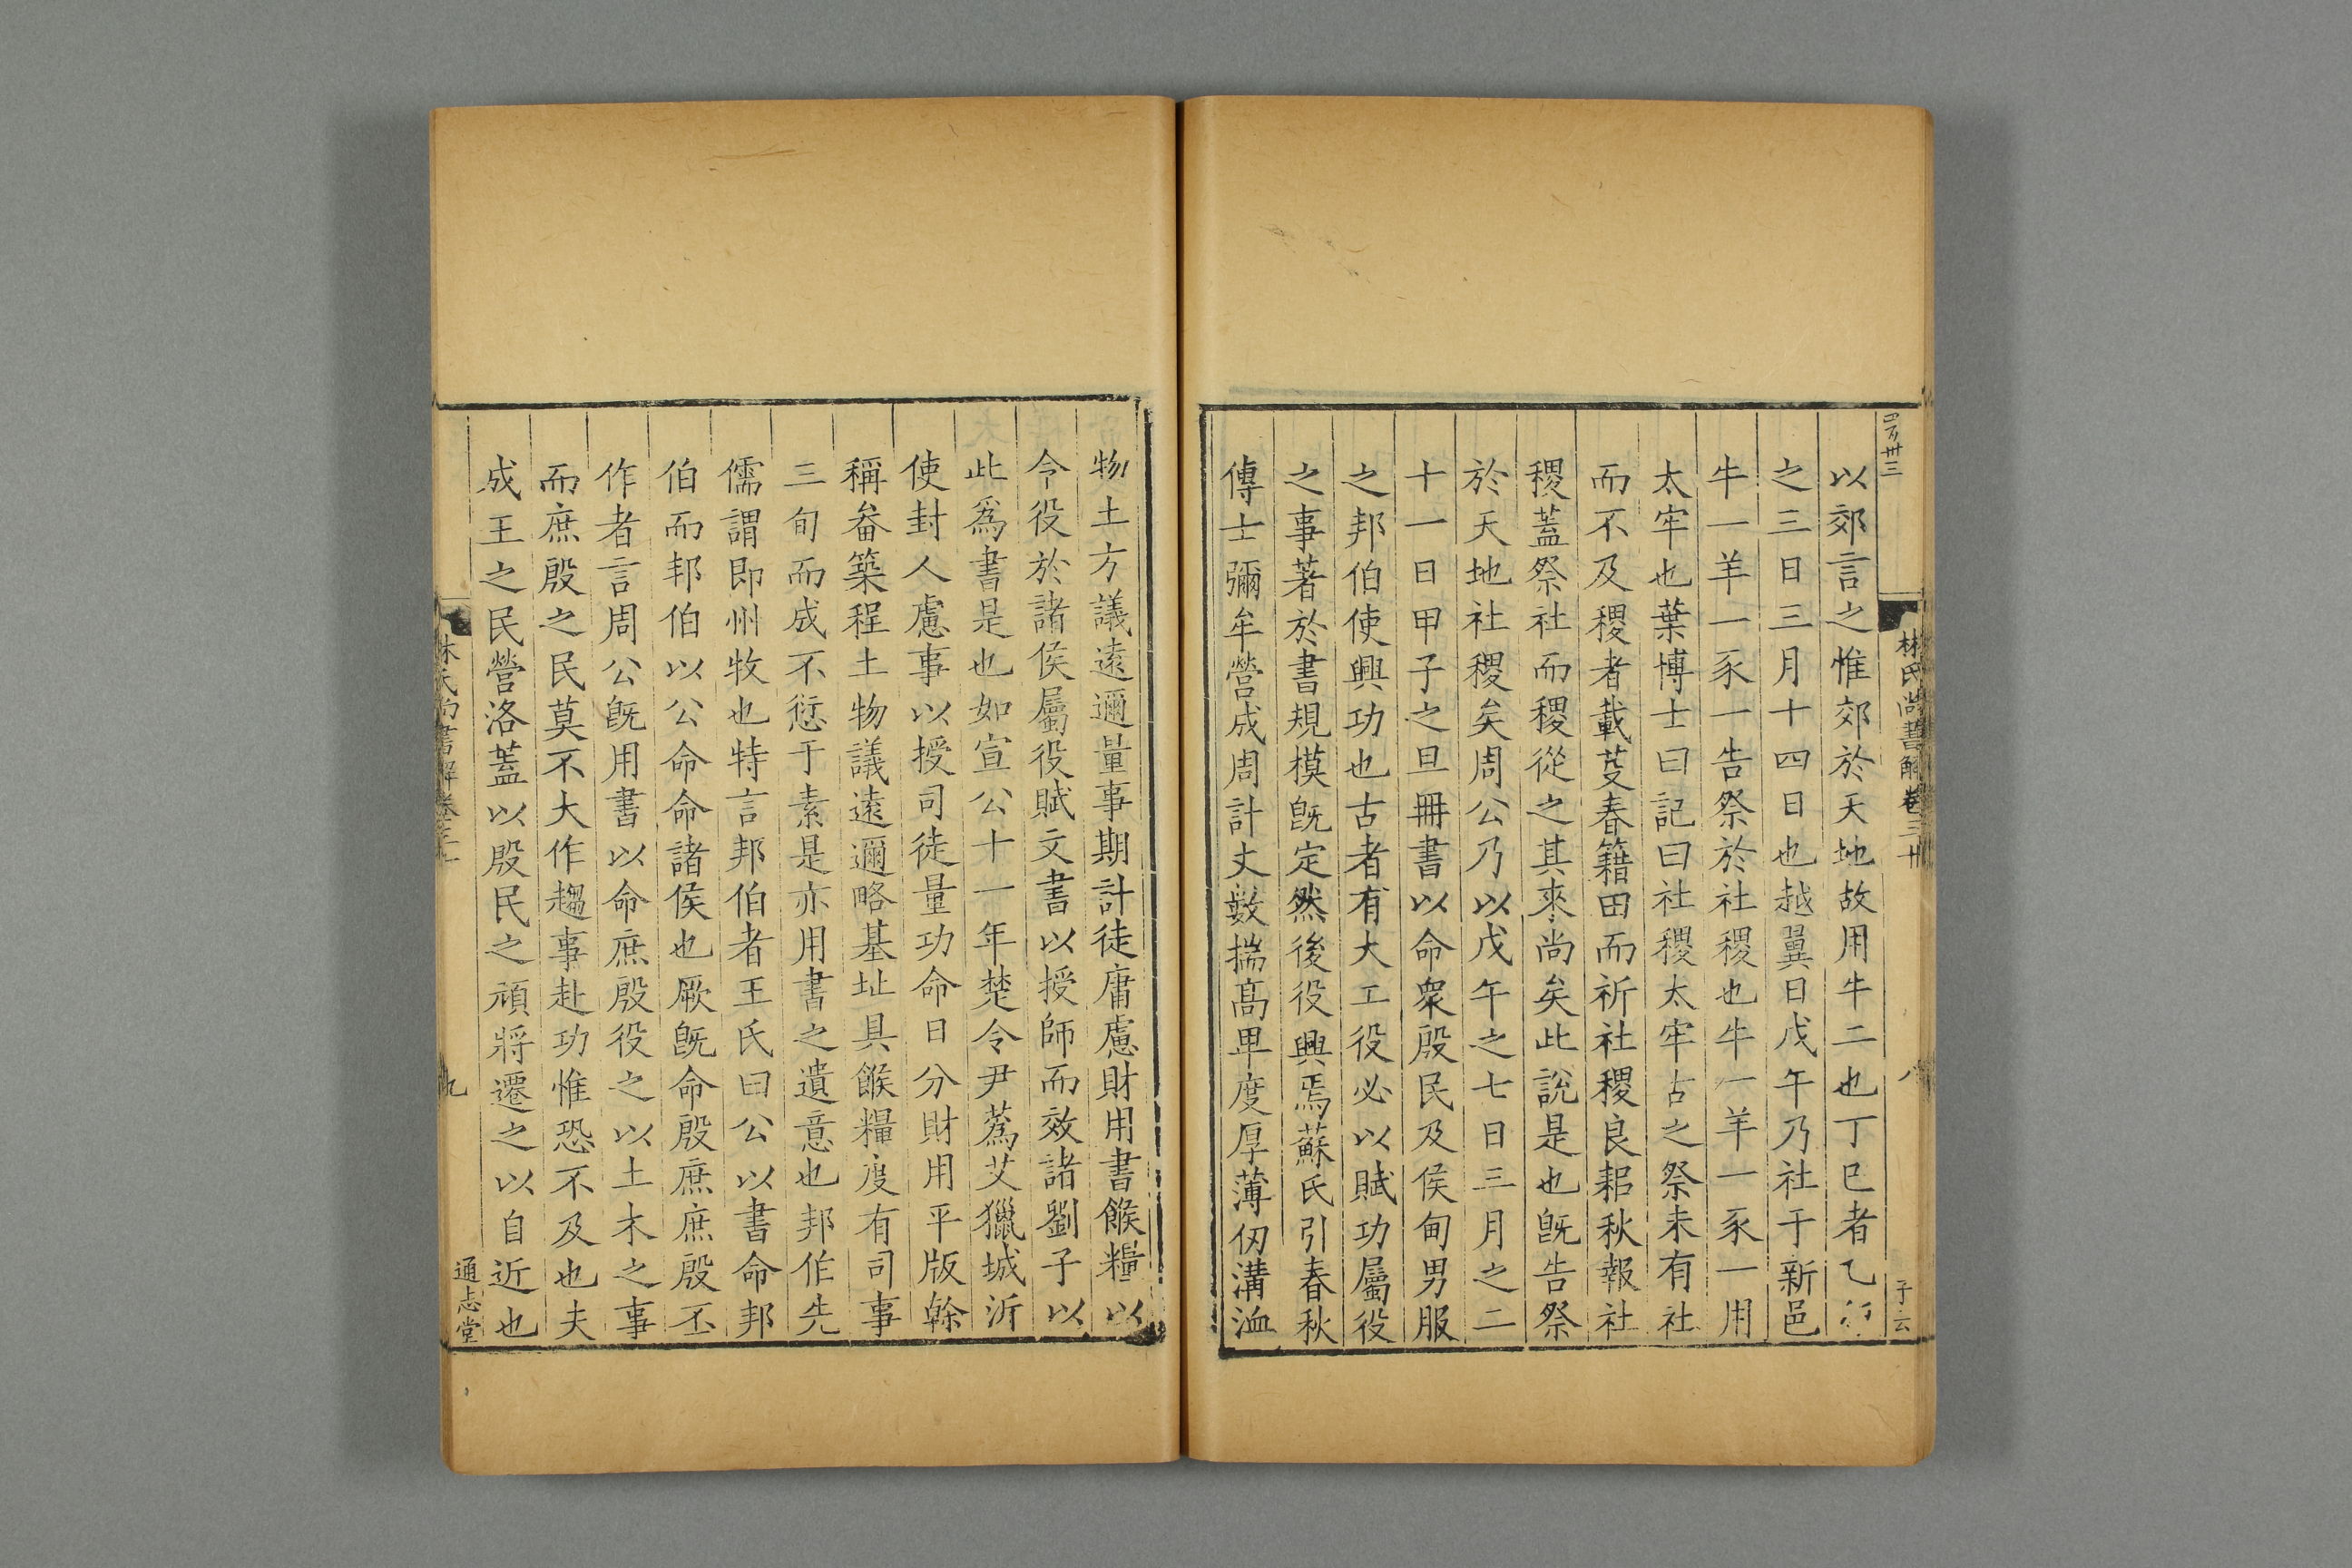 林氏尚書解卷三十
八
以郊言之惟郊於天地故用牛二也丁巳者乙
之三日三月十四日也越翼日戊午乃社于新邑
牛一羊一豕一告祭於社稷也牛一羊一豕一用
太牢也葉博士曰記曰社稷太牢古之祭未有社
而不及稷者載芟春籍田而祈社稷良耜秋報社
稷蓋祭社而稷從之其來尚矣此說是也旣告祭
於天地社稷矣周公乃以戊午之七日三月之二
十一日甲子之旦冊書以命衆殷民及侯甸男服
之邦伯使興功也古者有大工役必以賦功屬役
之事著於書規模旣定然後役興焉蘇氏引春秋
傳士彌牟營成周計丈數揣高卑度厚薄仞溝洫
子云
物土方議遠邇量事期計徒庸慮財用書餱糧以
令役於諸侯屬役賦文書以授師而效諸劉子以
此爲書是也如宣公十一年楚令尹蒍艾獵城沂
使封人慮事以授司徒量功命日分財用平版榦
稱畚築程土物議遠邇略基址具餱糧度有司事
三旬而成不愆于素是亦用書之遺意也邦伯先
儒謂即州牧也特言邦伯者王氏曰公以書命邦
伯而邦伯以公命命諸侯也厥旣命殷庶庶殷丕
作者言周公旣用書以命庶殷役之以土木之事
而庶殷之民莫不大作趨事赴功惟恐不及也夫
成王之民營洛蓋以殷民之頑將遷之以自近也
林氏尚書解卷三十
九
通志堂